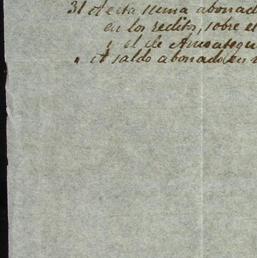 31 A esta suma abonad
en los reditos, sobre el
y el de Amoategu
" A saldo abonado en